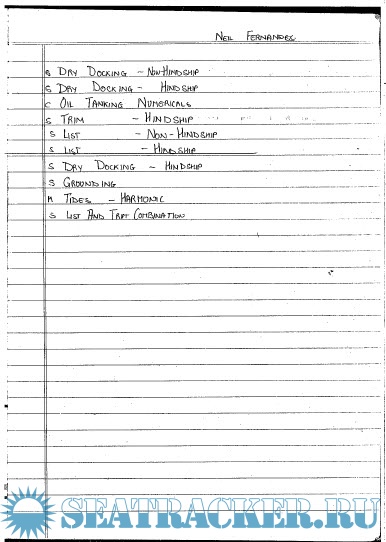 NEIL FERNANDES
S DRY DOCKING - NON-HINDSHIP
S DRY DOCKING - HINDSHIP
C OIL TANKING NUMERICALS
S TRIM - HINDSHIP
S LIST - NON-HINDSHIP
S LIST - HINDSHIP
S DRY DOCKING - HINDSHIP
S GROUNDING
M TIDES - HARMONIC
S LIST AND TRIM COMBINATION
SEATRACKER.RU